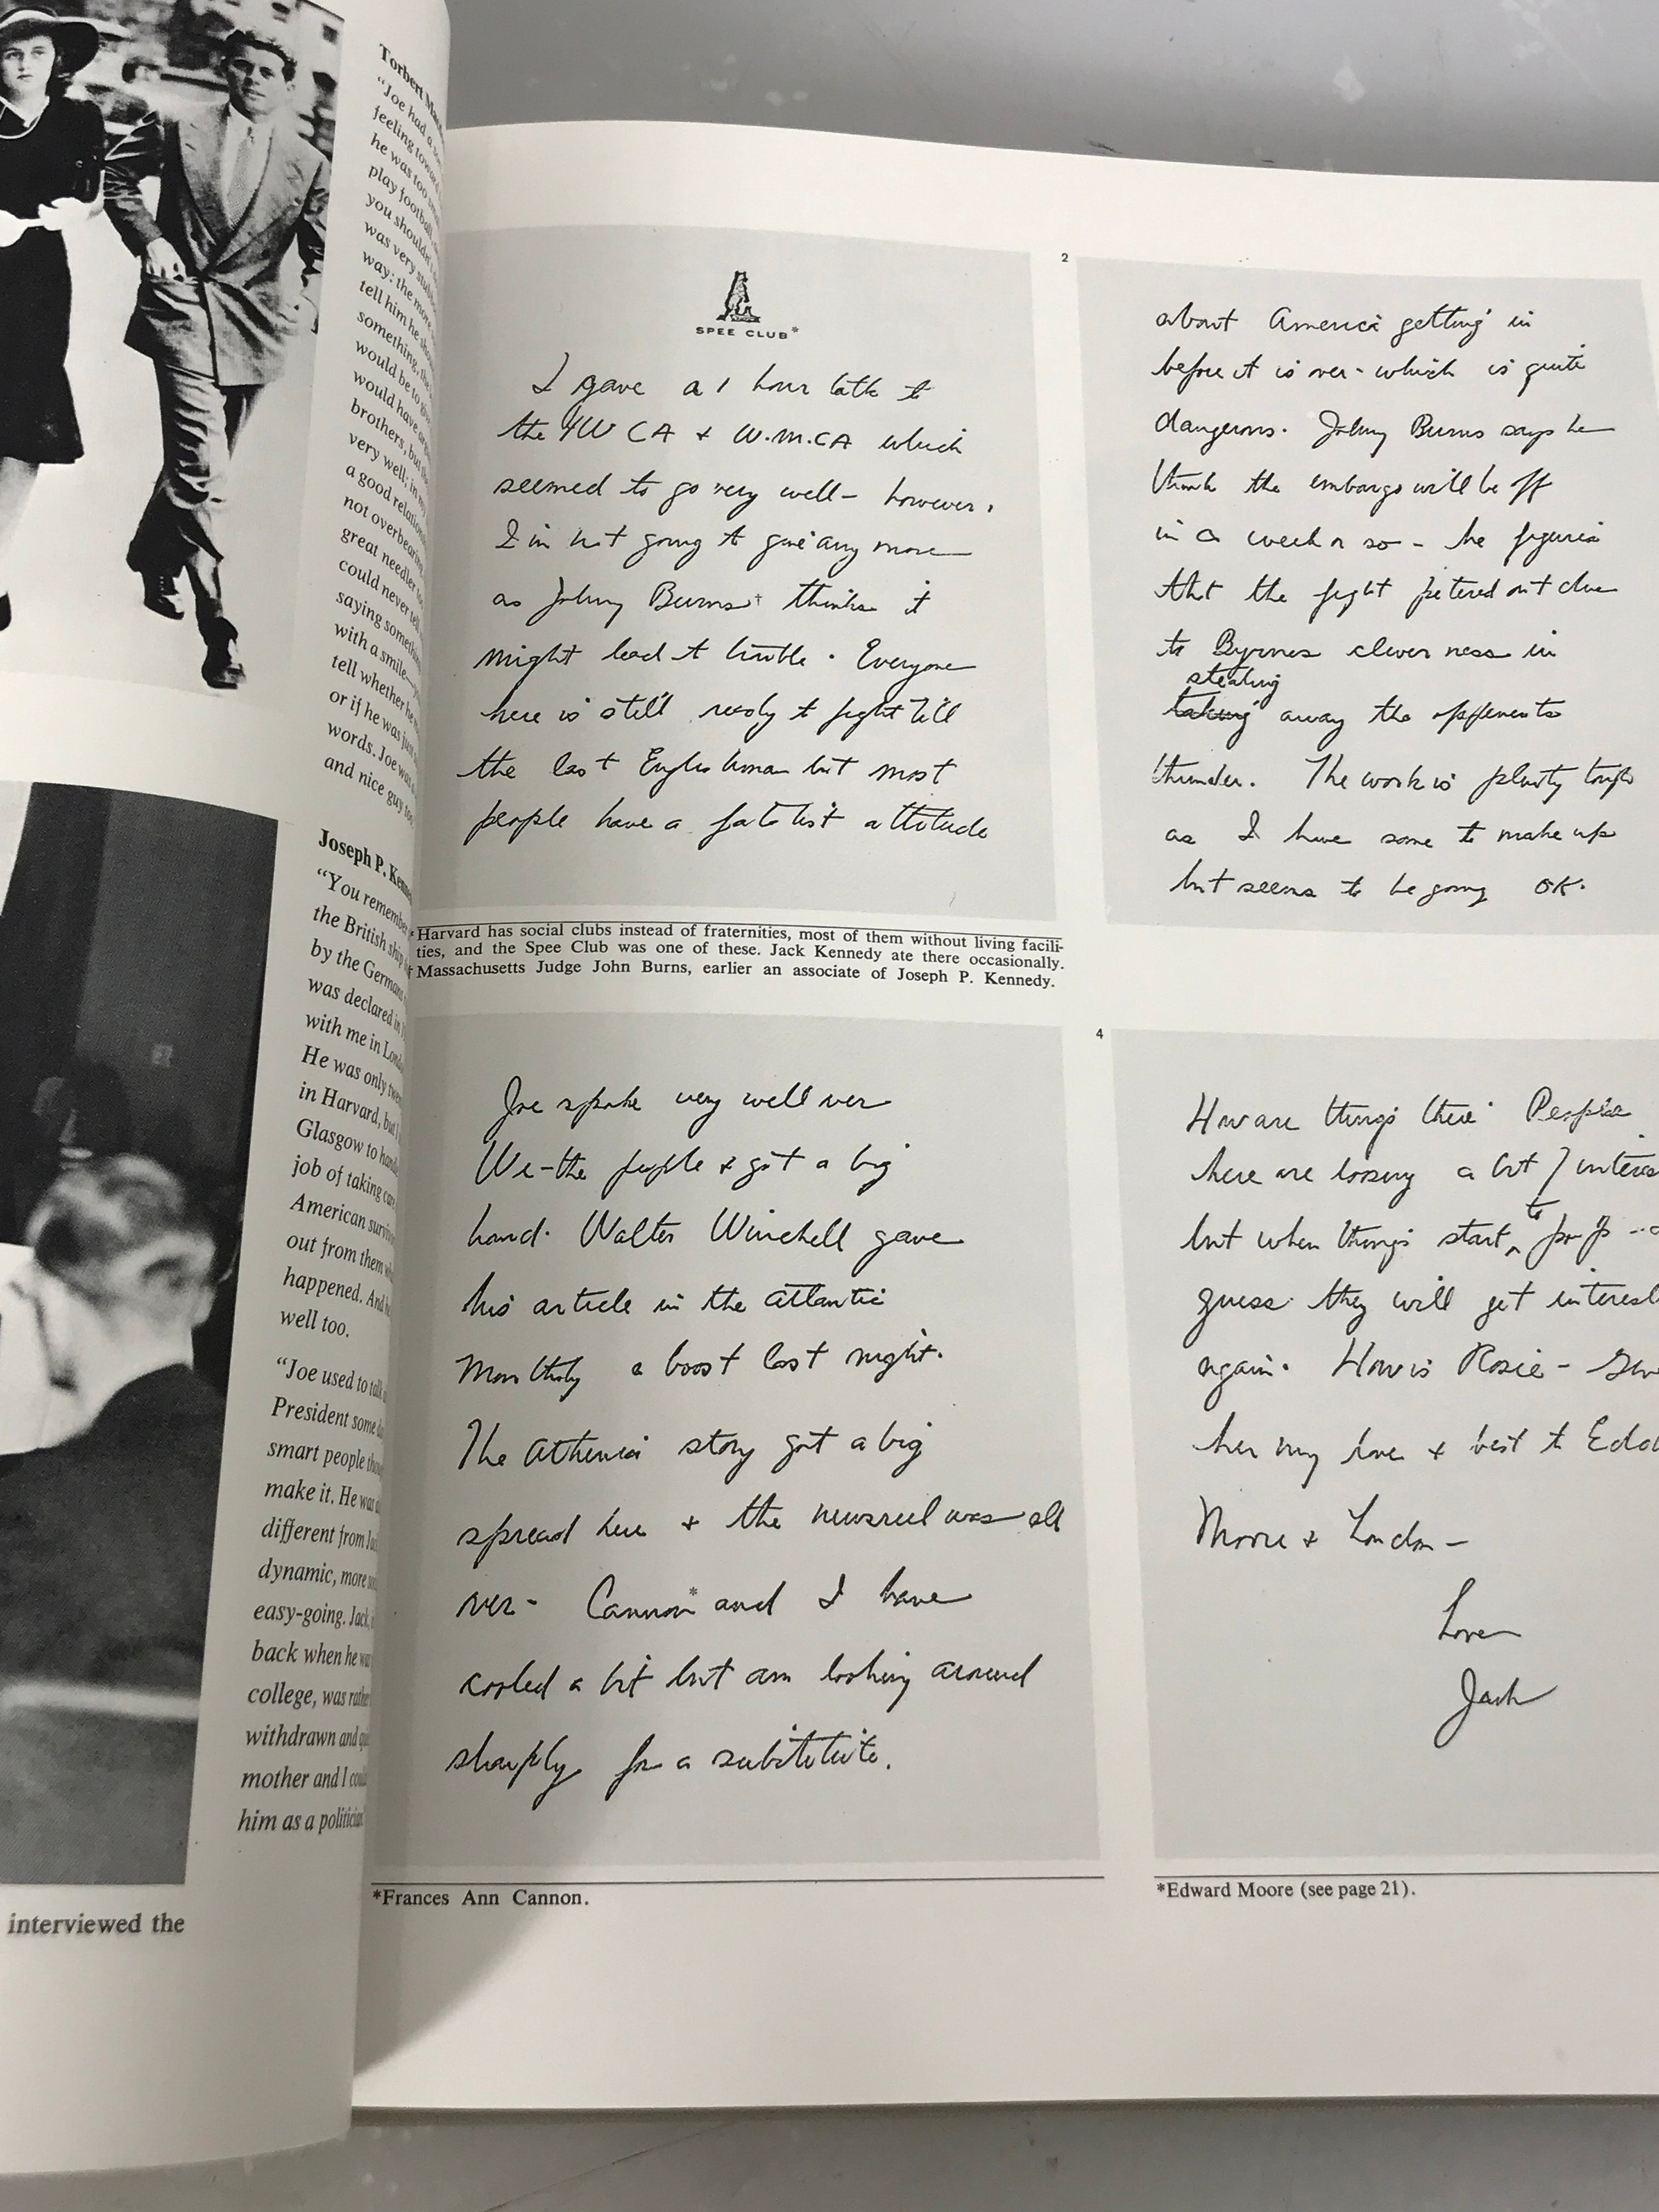 Torbert
"Joe had a
feeling toward
he was too
play football,
you shouldn't
was very
way: the more
tell him he
something,
would be to
would have
brothers, but
very well; in
a good
not overbearing,
great needler
could never tell
saying
with a smile—
tell whether he
or if he was just
words. Joe was
and nice guy too.
Joseph P.
"You remember
the British ship
by the Germans
was declared in
with me in
He was only
in Harvard, but
Glasgow to
job of taking care
American
out from them
happened. And
well too.
"Joe used to talk
President some
smart people
make it. He was
different from
dynamic, more
easy-going. Jack,
back when he was
college, was
withdrawn and
mother and I
him as a
interviewed the
SPEE CLUB*
I gave a 1 hour talk to
the YWCA + W.M.CA which
seemed to go very well – however,
I'm not going to give any more
as Johny Burns† thinks it
might lead to trouble. Everyone
here is still ready to fight till
the last Englishman but most
people have a fatalist attitude
*Harvard has social clubs instead of fraternities, most of them without living facili-
ties, and the Spee Club was one of these. Jack Kennedy ate there occasionally.
†Massachusetts Judge John Burns, earlier an associate of Joseph P. Kennedy.
2
about America getting in
before it is over - which is quite
dangerous. Johny Burns says he
think the embargo will be off
in a week or so - he figures
that the fight petered out due
to Byrnes cleverness in
stealing
taking away the opponents
thunder. The work is plenty tough
as I have some to make up
but seems to be going OK.
Joe spoke very well over
We-the people + got a big
hand. Walter Winchell gave
his article in the Atlantic
Monthly a boost last night.
The Athenia story got a big
spread here + the newsreel was all
over - Cannon* and I have
cooled a bit but am looking around
sharply for a substitute.
*Frances Ann Cannon.
4
How are things there People
here are loosing a bit of
but when things start to pop
guess they will get
again. How is Rosie -
her my love + best to
Moore + London -
Love
Jack
*Edward Moore (see page 21).